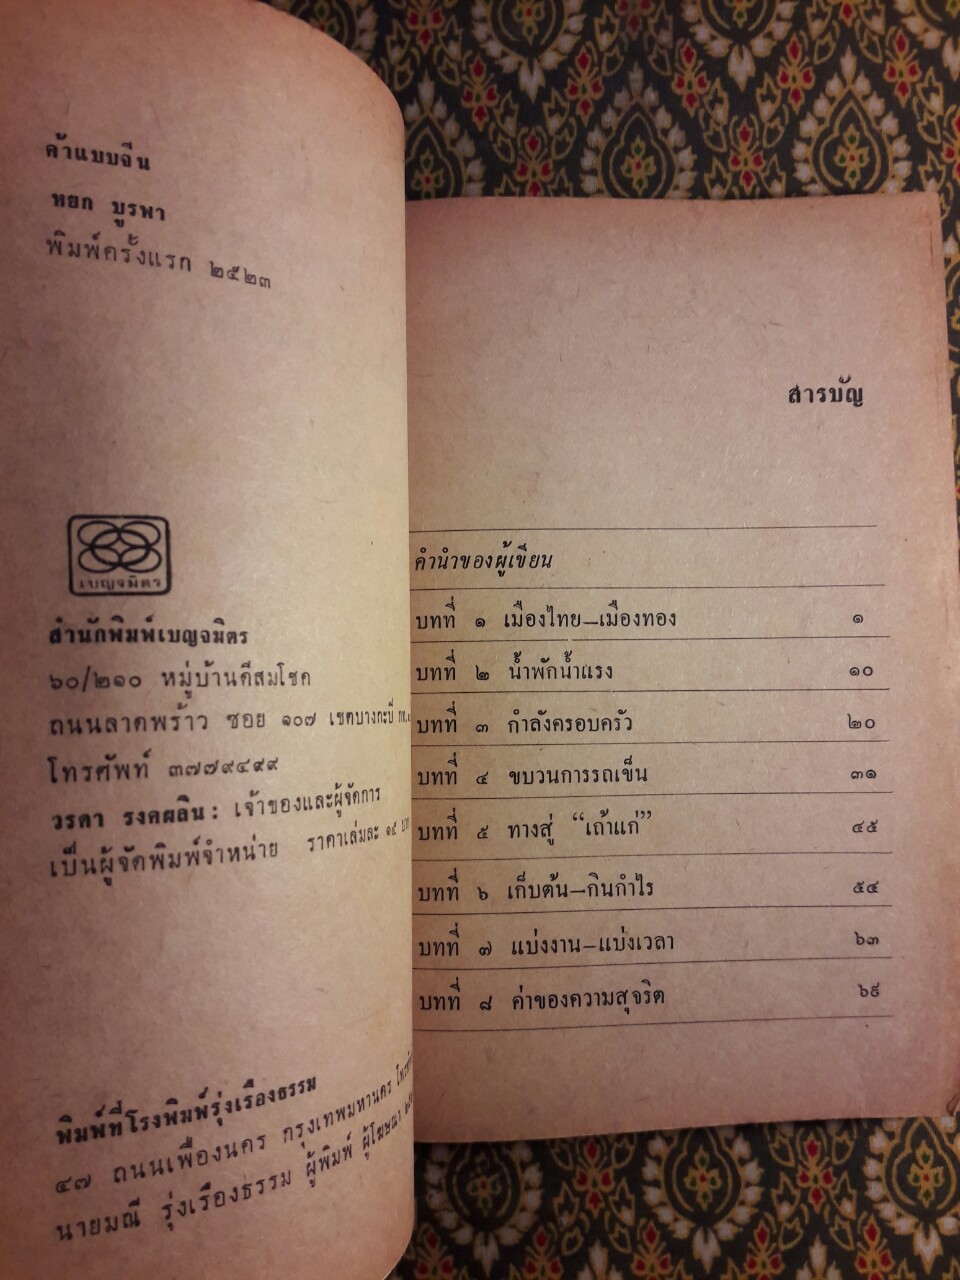 ค้าแบบจีน
หยก บูรพา
พิมพ์ครั้งแรก ๒๕๒๓
เบญจมิตร
สำนักพิมพ์เบญจมิตร
๖๐/๒๑๐ หมู่บ้านดีสมโชค
ถนนลาดพร้าว ซอย ๑๐๗ เขตบางกะปิ
โทรศัพท์ ๓๗๗๙๔๙๙
วรดา รงคผลิน: เจ้าของและผู้จัดการ
เป็นผู้จัดพิมพ์จำหน่าย ราคาเล่มละ ๑๔
พิมพ์ที่โรงพิมพ์รุ่งเรืองธรรม
๔๗ ถนนเฟื่องนคร กรุงเทพมหานคร
นายมณี รุ่งเรืองธรรม ผู้พิมพ์ ผู้โฆษณา
สารบัญ
คำนำของผู้เขียน
บทที่ ๑ เมืองไทย–เมืองทอง ๑
บทที่ ๒ น้ำพักน้ำแรง ๑๐
บทที่ ๓ กำลังครอบครัว ๒๐
บทที่ ๔ ขบวนการรถเข็น ๓๑
บทที่ ๕ ทางสู่ “เถ้าแก่” ๔๕
บทที่ ๖ เก็บต้น–กินกำไร ๕๔
บทที่ ๗ แบ่งงาน–แบ่งเวลา ๖๓
บทที่ ๘ ค่าของความสุจริต ๖๙